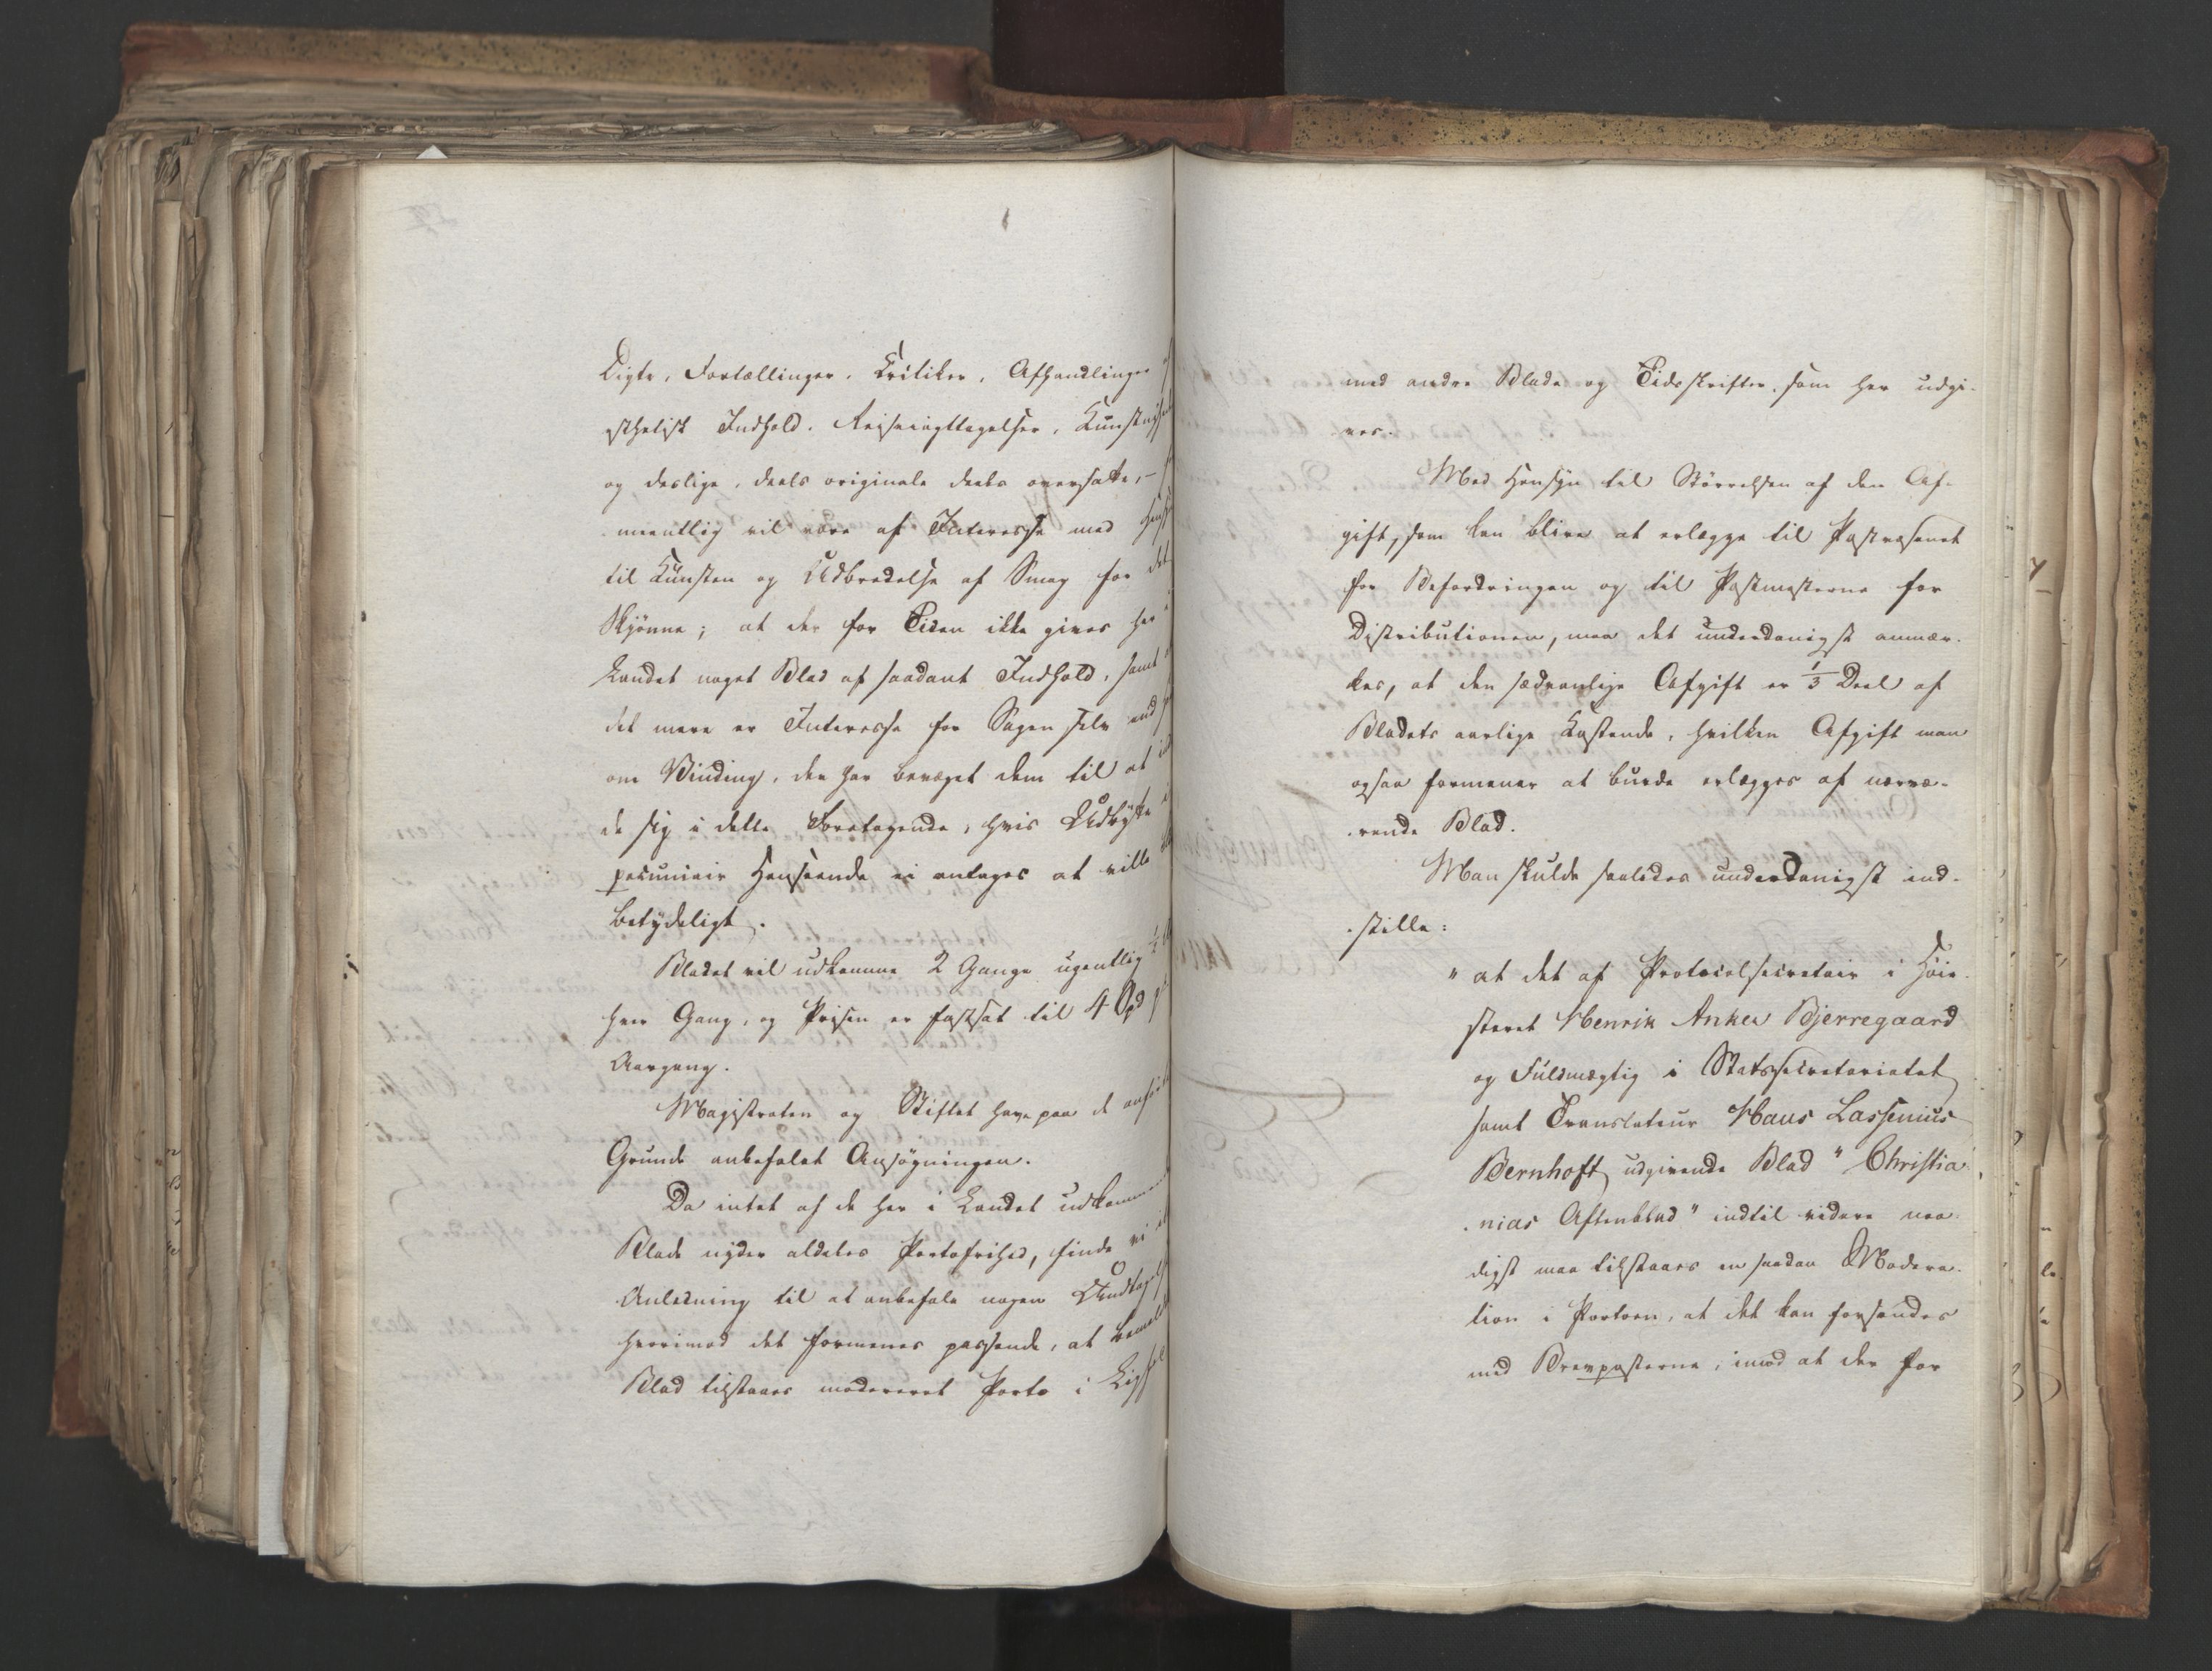 Digte, Fortællinger, Kritiker, Afhandlinger
æsthetisk Indhold, Reiseiagttagelser, Kunstnyhed
og deslige, deels originale deels oversatte, –
mentlig vil være af Interesse med Hensyn
til Kunsten og Udbredelse af Smag for det
Skjønne; at der for Tiden ikke gives her
Landet noget Blad af saadant Indhold, samt
det mere er Interesse for Sagen selv end
om Vinding, der har bevæget dem til at
de sig i dette Foretagende, hvis Udbytte
pecuniair Henseende ei antages at ville
betydeligt.
Bladet vil udkomme 2 Gange ugentlig ½
hver Gang, og Prisen er fastsat til 4 Spd
Aargang.
Magistraten og Stiftet have paa de anførte
Grunde anbefalet Ansøgningen.
Da intet af de her i Landet udkommende
Blade nyder aldeles Portofrihed, finde vi
Anledning til at anbefale nogen Undtagelse
hvorimod det formenes passende, at bemeldte
Blad tilstaaes modereret Porto i Lighed
med andre Blade og Tidsskrifter, som her udgi-
ves.
Med Hensyn til Størrelsen af den Af-
gift, som kan blive at erlægge til Postvæsenet
for Befordringen og til Postmesterne for
Distributionen, maa det underdanigst anmær-
kes, at den sædvanlige Afgift er 1/3 Deel af
Bladets aarlige Kostende, hvilken Afgift man
ogsaa formener at burde erlægges af nærvæ-
rende Blad.
Man skulde saaledes underdanigst ind-
stille:
"at det af Protocolsecretair i Høie-
steret Henrik Anker Bjerregaard
og Fuldmægtig i Statssecretariatet
samt Translateur Hans Lassenius
Bernhoft udgivende Blad "Christia-
nias Aftenblad" indtil videre naa-
digst maa tilstaaes en saadan Modera-
tion i Portoen, at det kan forsendes
med Brevposterne, imod at der for